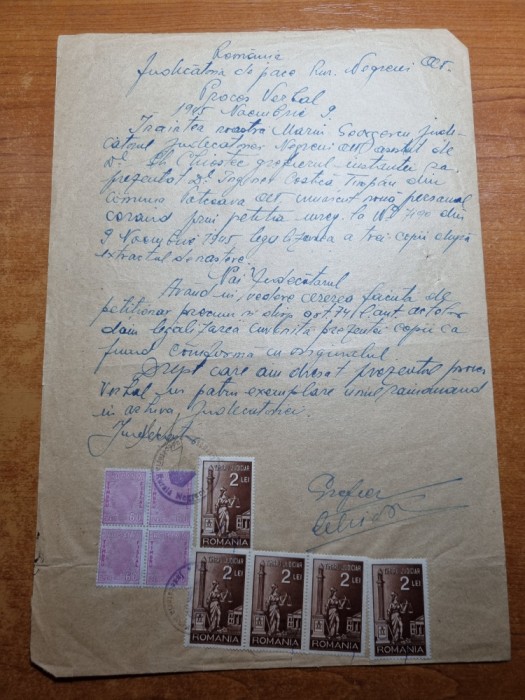 România
Judecătoria de pace Rur. Negreni Olt.
Proces Verbal
1945 Noembrie 9.
Înaintea noastră Marin Jude-
cătorul Judecătoriei Negreni Olt asistat de
Dl. Gh. grefierul instanței s'a
prezentat Dl. Inginer Costică din
Comuna Olt cunoscut nouă personal
cerând prin petiția înreg. la No 7490 din
9 Noembrie 1945, legalizarea a trei copii după
extractul de naștere
Noi Judecătorul
Având în vedere cererea făcută de
petiționar precum și disp. art.
dăm legalitarea cuvenită prezentei copii ca
fiind conformă cu originalul.
Drept care am dresat prezentul proces
Verbal în patru exemplare unul rămânând
în arhiva Judecătoriei.
Judecător
Grefier
TIMBRU JUDICIAR
2 LEI
ROMANIA
2 LEI
ROMANIA
2 LEI
ROMANIA
2 LEI
ROMANIA
2 LEI
ROMANIA